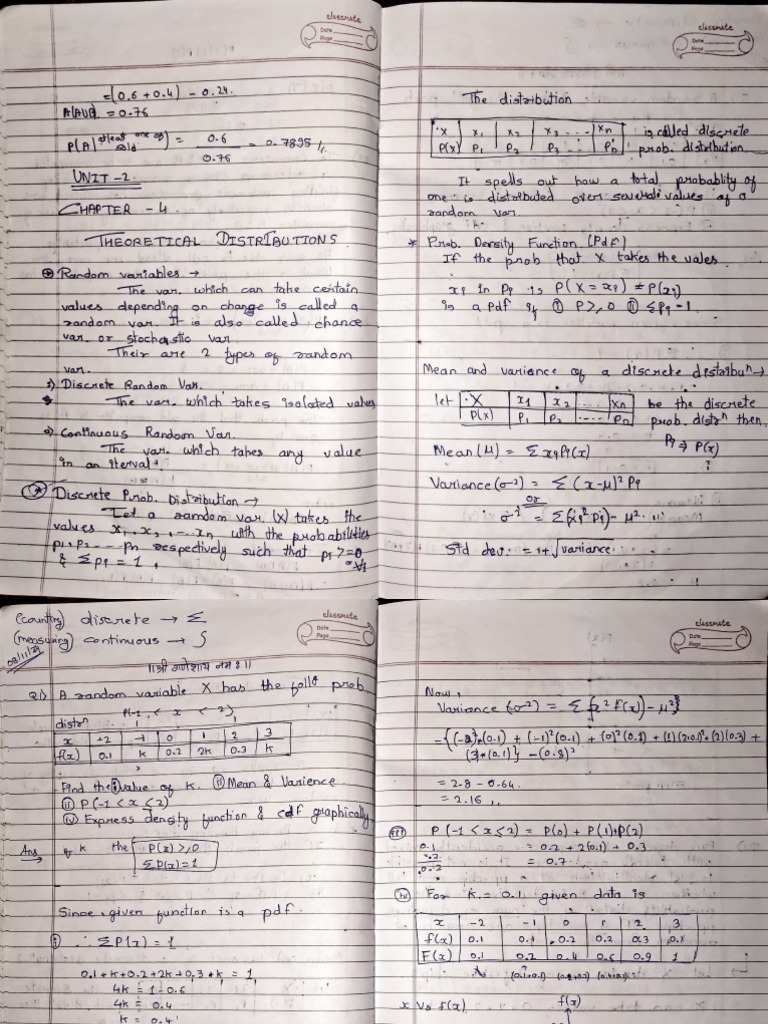 classmate
Date
Page
= (0.6 + 0.4) - 0.24.
P(AUB) = 0.76
P(A| atleast one of
= 0.6 / 0.76 = 0.7895 //
UNIT-2
CHAPTER - 4
THEORETICAL DISTRIBUTIONS
Random variables →
The var. which can take certain
values depending on change is called a
random var. It is also called chance
var. or stochastic var.
Their are 2 types of random
var.
Discrete Random Var.
The var. which takes isolated values
Continuous Random Var.
The var. which takes any value
in an iterval.
Discrete Prob. Distribution →
Let a random var. (X) takes the
values x1, x2, .... xn with the probabilities
p1, p2 .... pn respectively such that pi >= 0
& Σpi = 1,
classmate
Date
Page
The distribution
X x1 x2 x3 .... xn
P(x) P1 P2 P3 ... Pn
is called discrete
prob. distribution
It spells out how a total probablity of
one is distributed over several values of a
random var.
* Prob. Density Function (Pdf)
If the prob that X takes the vales
xi in Pi is P(X = xi) = P(xi)
is a pdf if ① P>,0 ② ΣPi = 1.
Mean and variance of a discrete distribun →
let X x1 x2 .... xn be the discrete
P(x) P1 P2 .... Pn prob. distrn then,
Pi ⇒ P(x)
Mean (μ) = Σ xi Pi(x)
Variance (σ²) = Σ (x-μ)² Pi
or
σ² = Σ(xi² Pi) - μ²
Std dev. = + √variance
(counting) discrete → Σ
(measuring) continuous → ∫
08/11/24
॥ श्री गणेशाय नमः ॥
classmate
Date
Page
Q1) A random variable X has the follg prob.
P(-1 < x < 2)
distrn
x -2 -1 0 1 2 3
f(x) 0.1 k 0.2 2k 0.3 k
Find the ① value of k. ② Mean & Varience
③ P(-1 < x < 2)
④ Express density function & cdf graphically
Ans → If k the P(x) >, 0
ΣP(x) = 1
Since, given function is a pdf.
① ∴ ΣP(x) = 1
0.1 + k + 0.2 + 2k + 0.3 + k = 1
4k = 1 - 0.6
4k = 0.4
k = 0.4
classmate
Date
Page
Now,
Variance (σ²) = Σ{x² f(x)} - μ²
= {(-2)²(0.1) + (-1)²(0.1) + (0)²(0.2) + (1)(2×0.1)² + (2)(0.3) +
(3)²(0.1)} - (0.8)²
= 2.8 - 0.64.
= 2.16 ,,
P(-1 < x ≤ 2) = P(0) + P(1) + P(2)
= 0.2 + 2(0.1) + 0.3
= 0.7
For k = 0.1 given data is
x -2 -1 0 1 2 3
f(x) 0.1 0.1 0.2 0.2 0.3 0.1
F(x) 0.1 0.2 0.4 0.6 0.9 1
x vs f(x)
f(x)